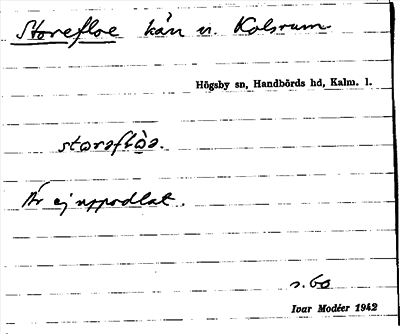 Storefloe kärr n. Kolsrum.
Högsby sn, Handbörds hd, Kalm. l.
Är ej uppodlat.
s. 60
Ivar Modéer 1942